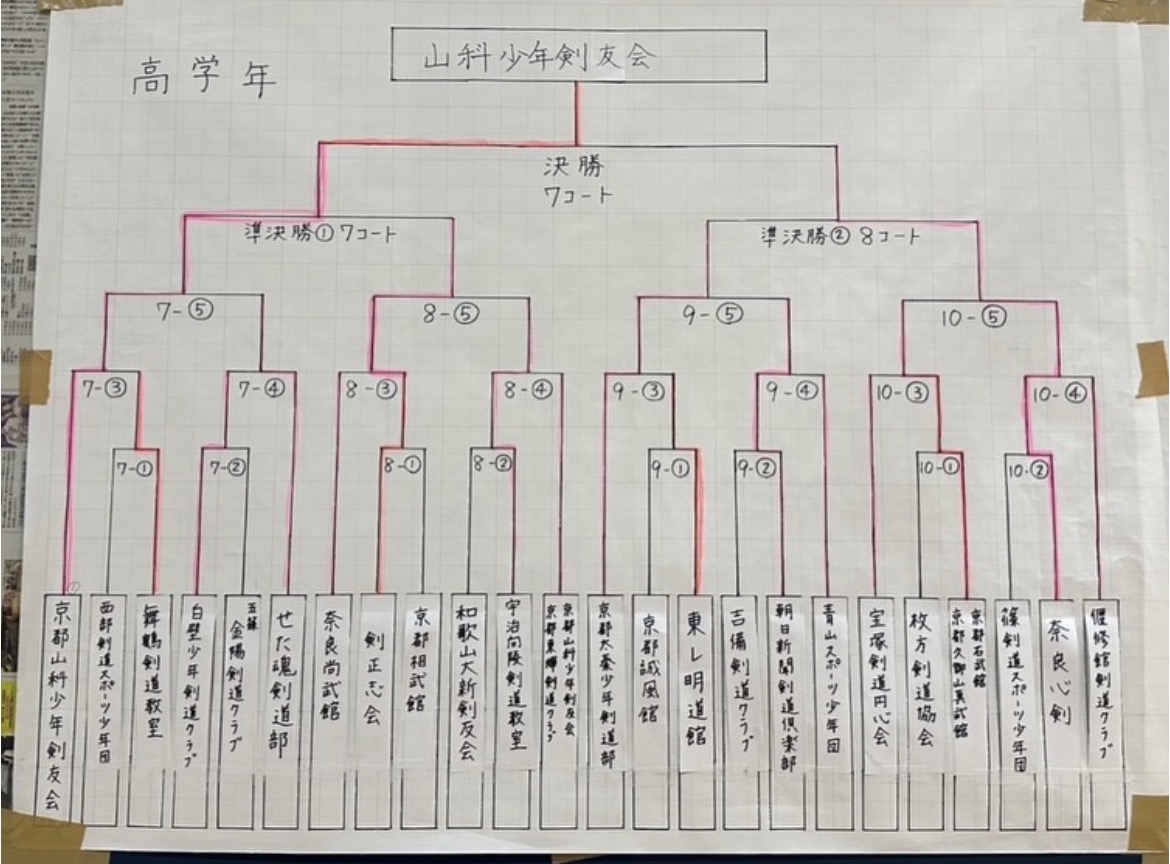 山科少年剣友会
高学年
決勝
7コート
準決勝① 7コート
準決勝② 8コート
7-⑤
8-⑤
9-⑤
10-⑤
7-③
7-④
8-③
8-④
9-③
9-④
10-③
10-④
7-①
7-②
8-①
8-②
9-①
9-②
10-①
10-②
京都山科少年剣友会
西部剣道スポーツ少年団
舞鶴剣道教室
白壁少年剣道クラブ
五條
金陽剣道クラブ
せた魂剣道部
奈良尚武館
剣正志会
京都相武館
和歌山大新剣友会
宇治向陵剣道教室
京都山科少年剣友会
京都東輝剣道クラブ
京都太秦少年剣道部
京都誠風館
東レ明道館
吉備剣道クラブ
朝日新聞剣道倶楽部
青山スポーツ少年団
宝塚剣道円心会
枚方剣道協会
京都石武館
京都久御山真武館
篠剣道スポーツ少年団
奈良心剣
偃修館剣道クラブ